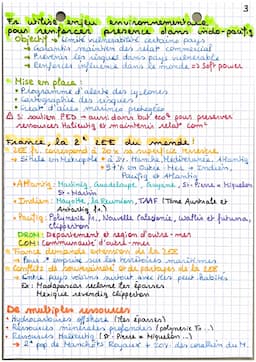 3
Fr utilise enjeu environnementaux
pour renforcer présence dans indo-pacifiq
Objectif → limite vulnérabilité certains pays
→ Garantir maintien des relat° commercial
→ Prévenir les risques dans pays vulnérable
→ Renforcer influence dans le monde => Soft power
Mise en place :
• Programme d'alerte des cyclones
• Cartographie des risques
• Créat° d'aires marines protégées
⚠ Si soutien PED → aussi dans but éco² pour préserver
ressources Halieutiq et maintenir relat° com²
France, la 2e ZEE du monde !
ZEE fr. correspond à 20 x sa superficie terrestre
→ Située en Métropole • à St. Manche, Méditerranée, Atlantiq
• 97% en Outre-Mer → Indien,
Pacifiq et Atlantiq
• Atlantiq : Martiniq, Guadeloupe, Guyane, St-Pierre et Miquelon
St-Martin
• Indien : Mayotte, la Réunion, TAAF (Terre Australe et
Antartiq fr.)
• Pacifiq : Polynésie fr., Nouvelle Calédonie, Wallis et Futuna,
Clipperton
DROM : Département et région d'outre-mer
COM : Communauté d'outre-mer
France demande extension de la ZEE
→ Pour + emprise sur les territoires maritimes
Conflits de souveraineté et de partages de la ZEE
→ Entre pays voisins surtout avec îles peut habités
Ex : Madagascar réclame îles éparses
Mexique revendiq Clipperton
De multiples ressources
• Hydrocarbures offshore (îles éparses)
• Ressources minérales profondes (Polynésie fr ...)
• Ressources Halieutiq (St-Pierre et Miquelon ...)
→ 2e pop de Manchots Royaux + 20% des corallien du M.